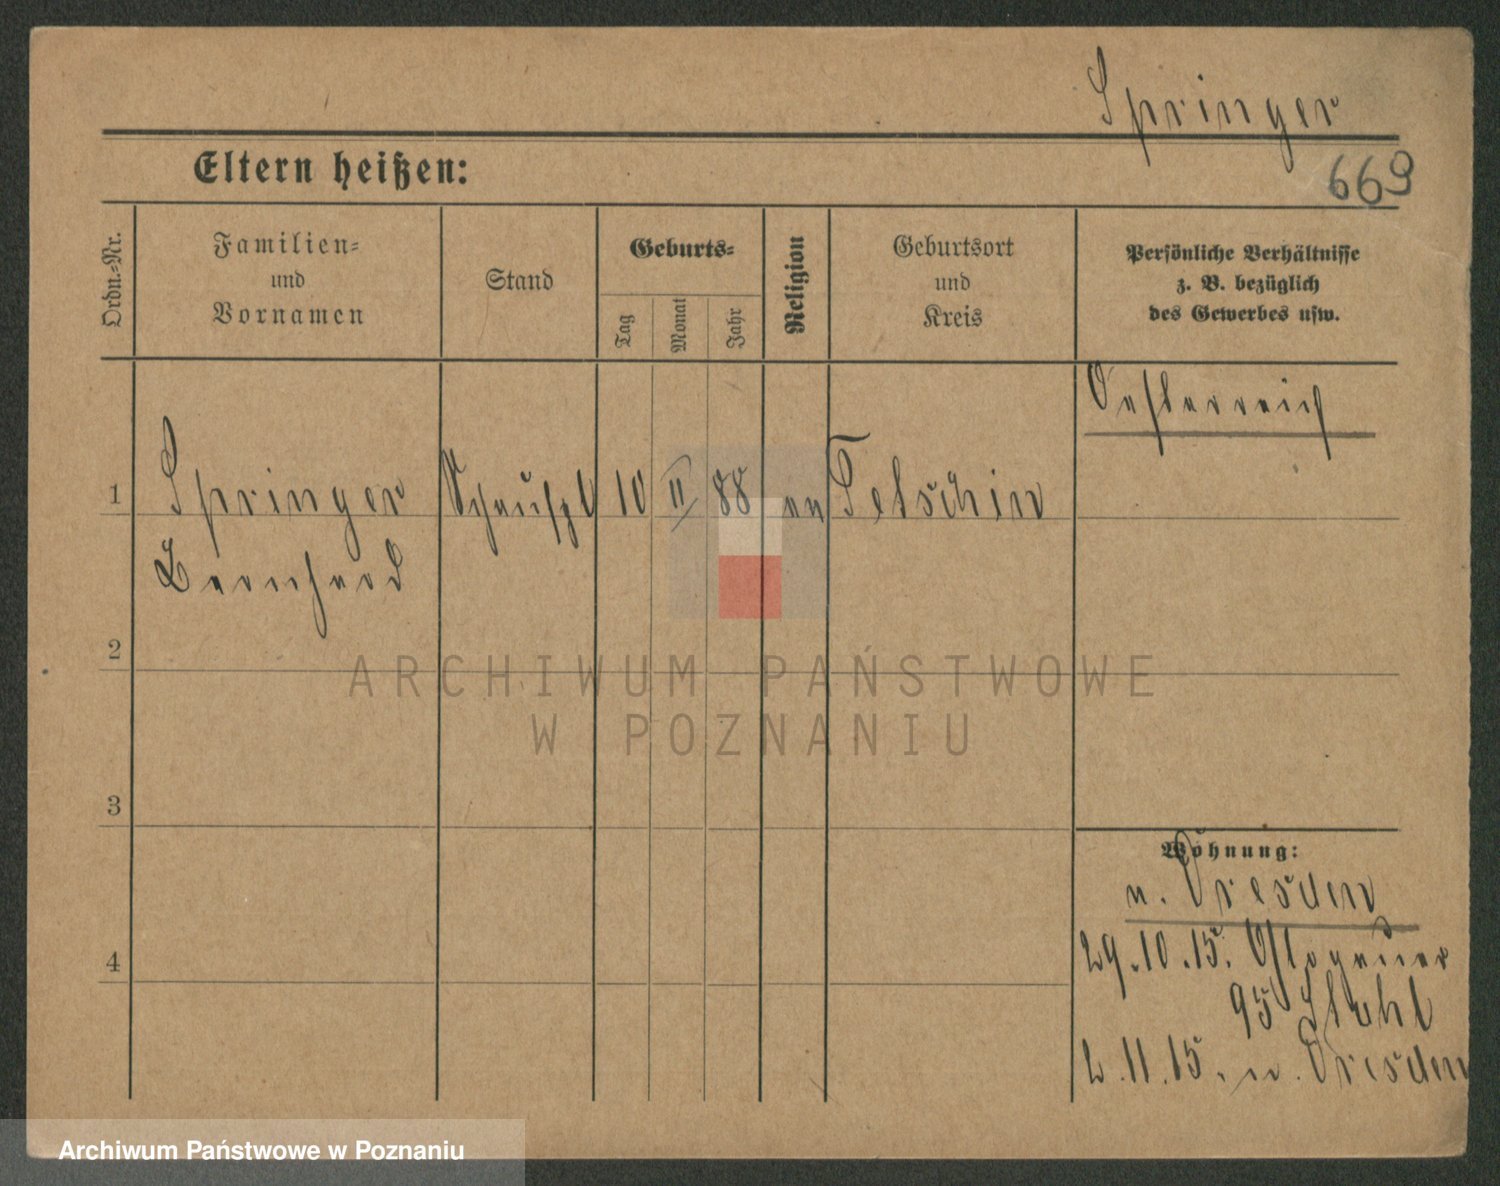 Springer
Eltern heißen:
669
Ordn.-Nr.
Familien-
und
Vornamen
Stand
Geburts-
Tag
Monat
Jahr
Religion
Geburtsort
und
Kreis
Persönliche Verhältnisse
z. B. bezüglich
des Gewerbes usw.
Oesterreich
1
Springer
Schauspl
10
II
88
Tetschin
Bernhard
2
3
4
Wohnung:
n. Dresden
29.10.15. Glogauer
95
2.11.15. n. Dresden
ARCHIWUM PAŃSTWOWE
W POZNANIU
Archiwum Państwowe w Poznaniu